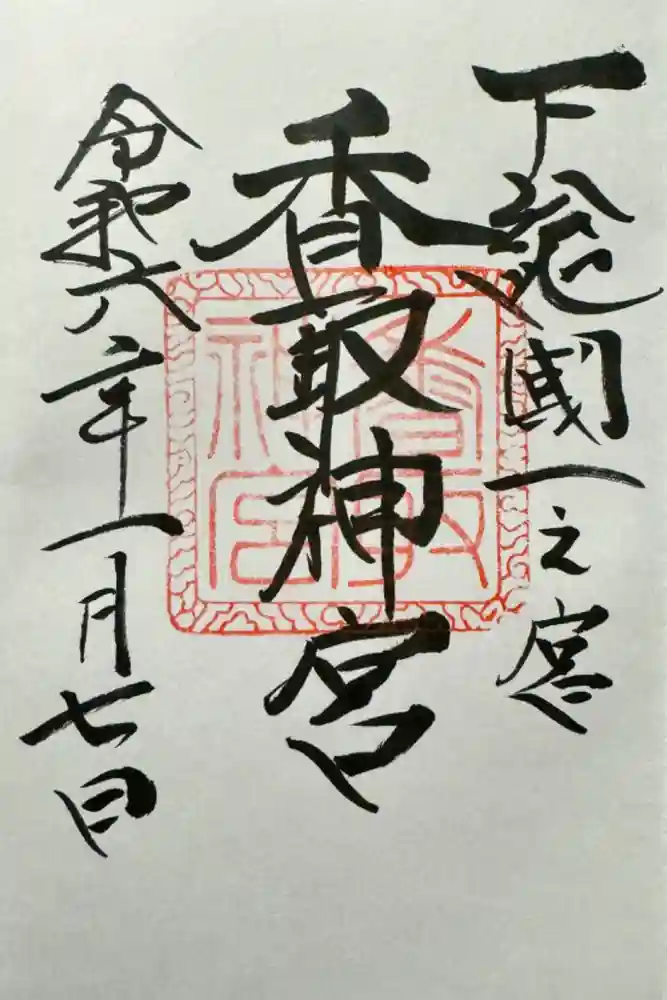 下総國一之宮
香取神宮
令和六年一月七日
香取神宮